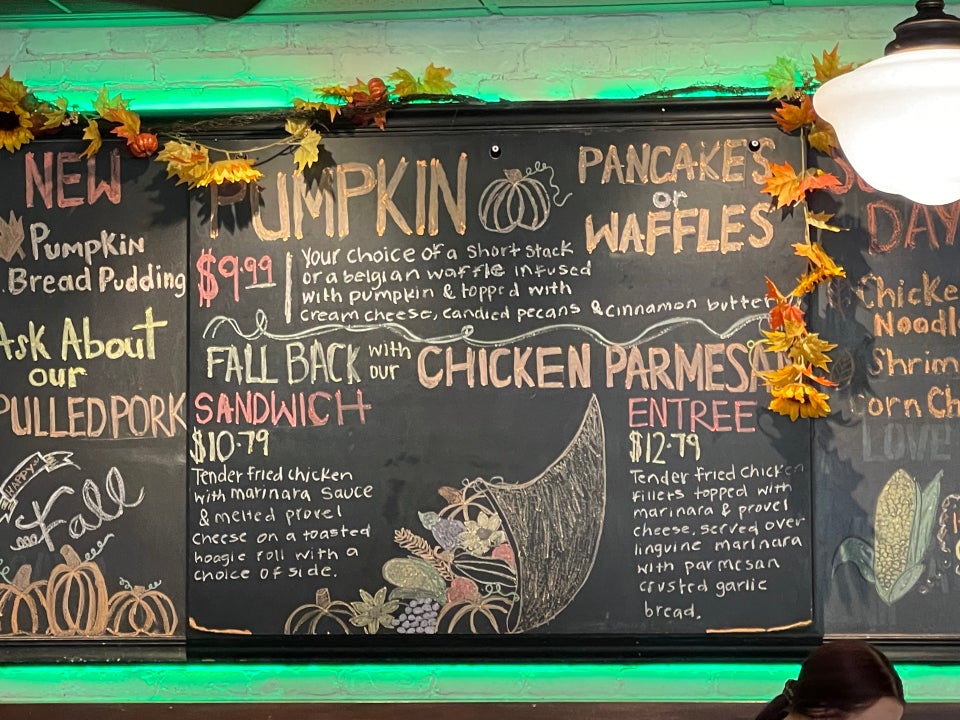 NEW
Pumpkin
Bread Pudding
Ask About
our
PULLED PORK
HAPPY
Fall
PUMPKIN
PANCAKES
or
WAFFLES
$9.99
Your choice of a short stack
or a belgian waffle infused
with pumpkin & topped with
cream cheese, candied pecans & cinnamon butter
FALL BACK with our CHICKEN PARMESAN
SANDWICH
$10.79
Tender fried chicken
with marinara sauce
& melted provel
cheese on a toasted
hoagie roll with a
choice of side.
ENTREE
$12.79
Tender fried chicken
fillets topped with
marinara & provel
cheese, served over
linguine marinara
with parmesan
crusted garlic
bread.
DAY
Chicke
Noodl
Shrim
orn Ch
LOVE